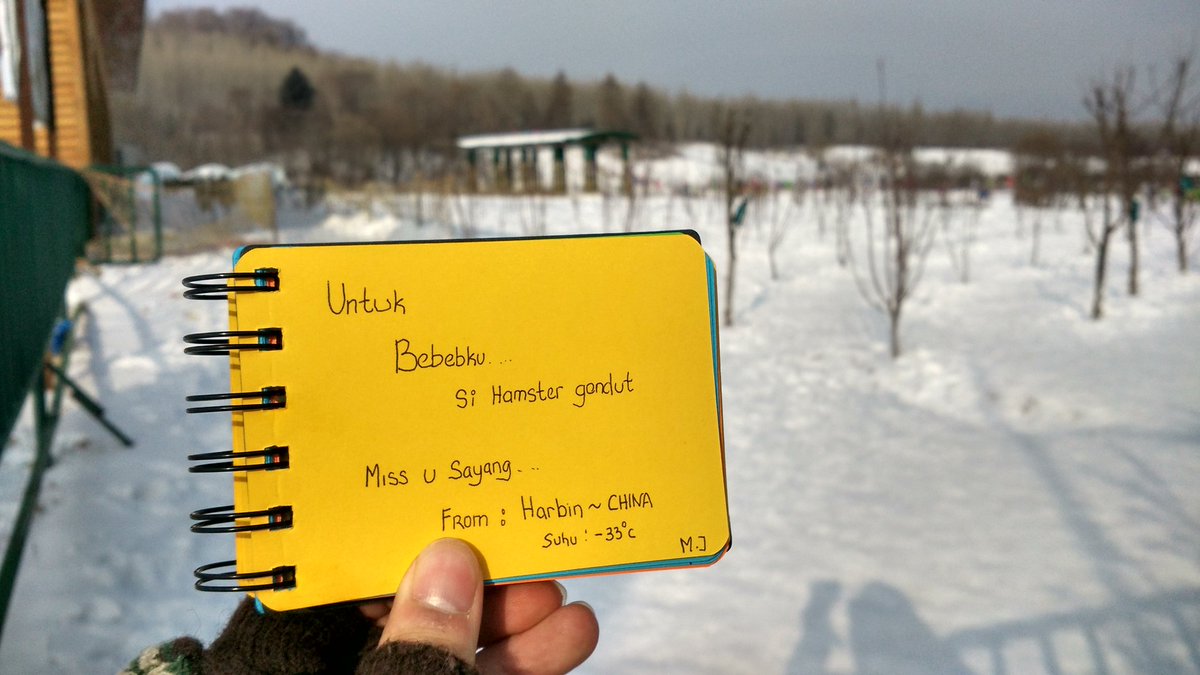 Untuk
Bebebku....
Si Hamster gendut
Miss u Sayang...
From : Harbin ~ CHINA
Suhu : -33°c
M.J